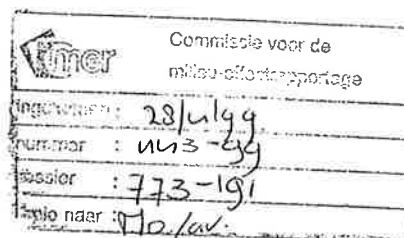 mer
Commissie voor de
milieu-effectrapportage
ingekomen :
nummer :
dossier : 773-191
kopie naar : Mo/av.